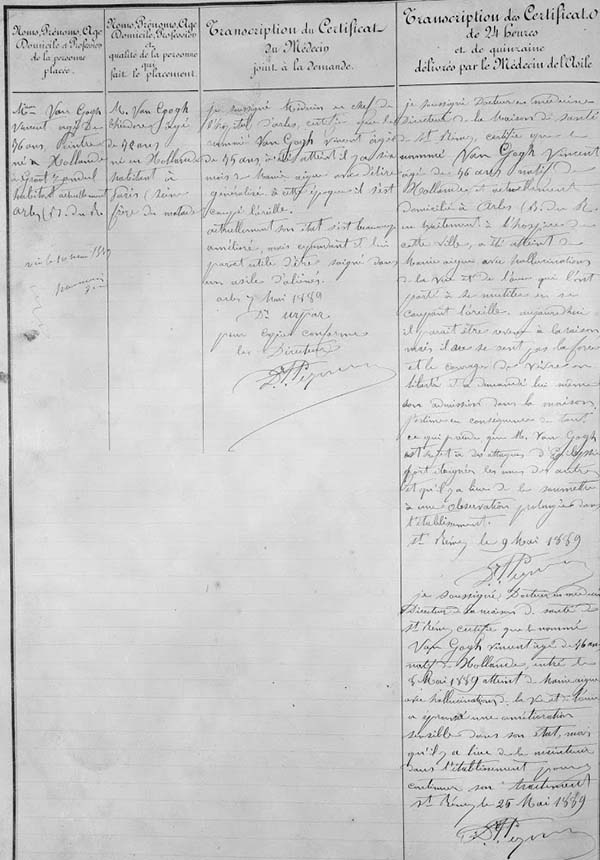 Noms, Prénoms, Age
Domicile et Profession
de la personne
placée.
Mr Van Gogh
Vincent agé de
36 ans, Peintre
né en Hollande
à Groot Zundert
habitant actuellement
Arles (B. du R.
Noms, Prénoms, Age
Domicile, Profession
et
qualité de la personne
qui
fait le placement.
M. Van Gogh
Théodore agé
de ans
né en Hollande
habitant à
Paris (Seine
frère du malade
Transcription du Certificat
du Médecin
joint à la demande.
je soussigné Médecin en chef de
l'hôpital d'arles, certifie que le
nommé Van Gogh vincent âgé
de 35 ans a été atteint il y a six
mois de manie aigue avec délire
généralisé. à cette époque il s'est
coupé l'oreille.
actuellement son état s'est beaucoup
amélioré, mais cependant il lui
parait utile d'être soigné dans
un asile d'aliénés.
arles 7 Mai 1889
Dr urpar
pour Copie conforme
Le Directeur
Dr Peyron
Transcription des Certificats
de 24 heures
et de quinzaine
délivrés par le Médecin de l'Asile
je soussigné Docteur en médecine
Directeur de la Maison de santé
de St Rémy, certifie que le
nommé Van Gogh Vincent
agé de 36 ans natif de
Hollande et actuellement
domicilié à Arles (B. du R.
en traitement à l'hospice de
cette ville, a été atteint de
Manie aigue avec hallucinations
de la vue et de l'ouie qui l'ont
porté à se mutiler en se
coupant l'oreille. aujourd'hui
il parait être revenu à la raison
mais il ne se sent pas la force
et le courage de vivre en
liberté et a demandé lui même
son admission dans la maison,
j'estime en conséquence de tout
ce qui précède que M. Van Gogh
est sujet à des attaques d'Epilepsie
fort éloignées les unes des autres
et qu'il y a lieu de le soumettre
à une observation prolongée dans
l'établissement.
St Rémy le 9 Mai 1889
Dr Peyron
je soussigné, Docteur en médecine
Directeur de la maison de santé de
St Rémy certifie que le nommé
Van Gogh vincent agé de 36 ans
natif de Hollande, entré le
8 Mai 1889 atteint de Manie aigue
avec hallucinations de la vue et de l'ouie
a éprouvé une amélioration
sensible dans son état, mais
qu'il y a lieu de le maintenir
dans l'établissement pour y
continuer son traitement
St Rémy, le 25 Mai 1889
Dr Peyron